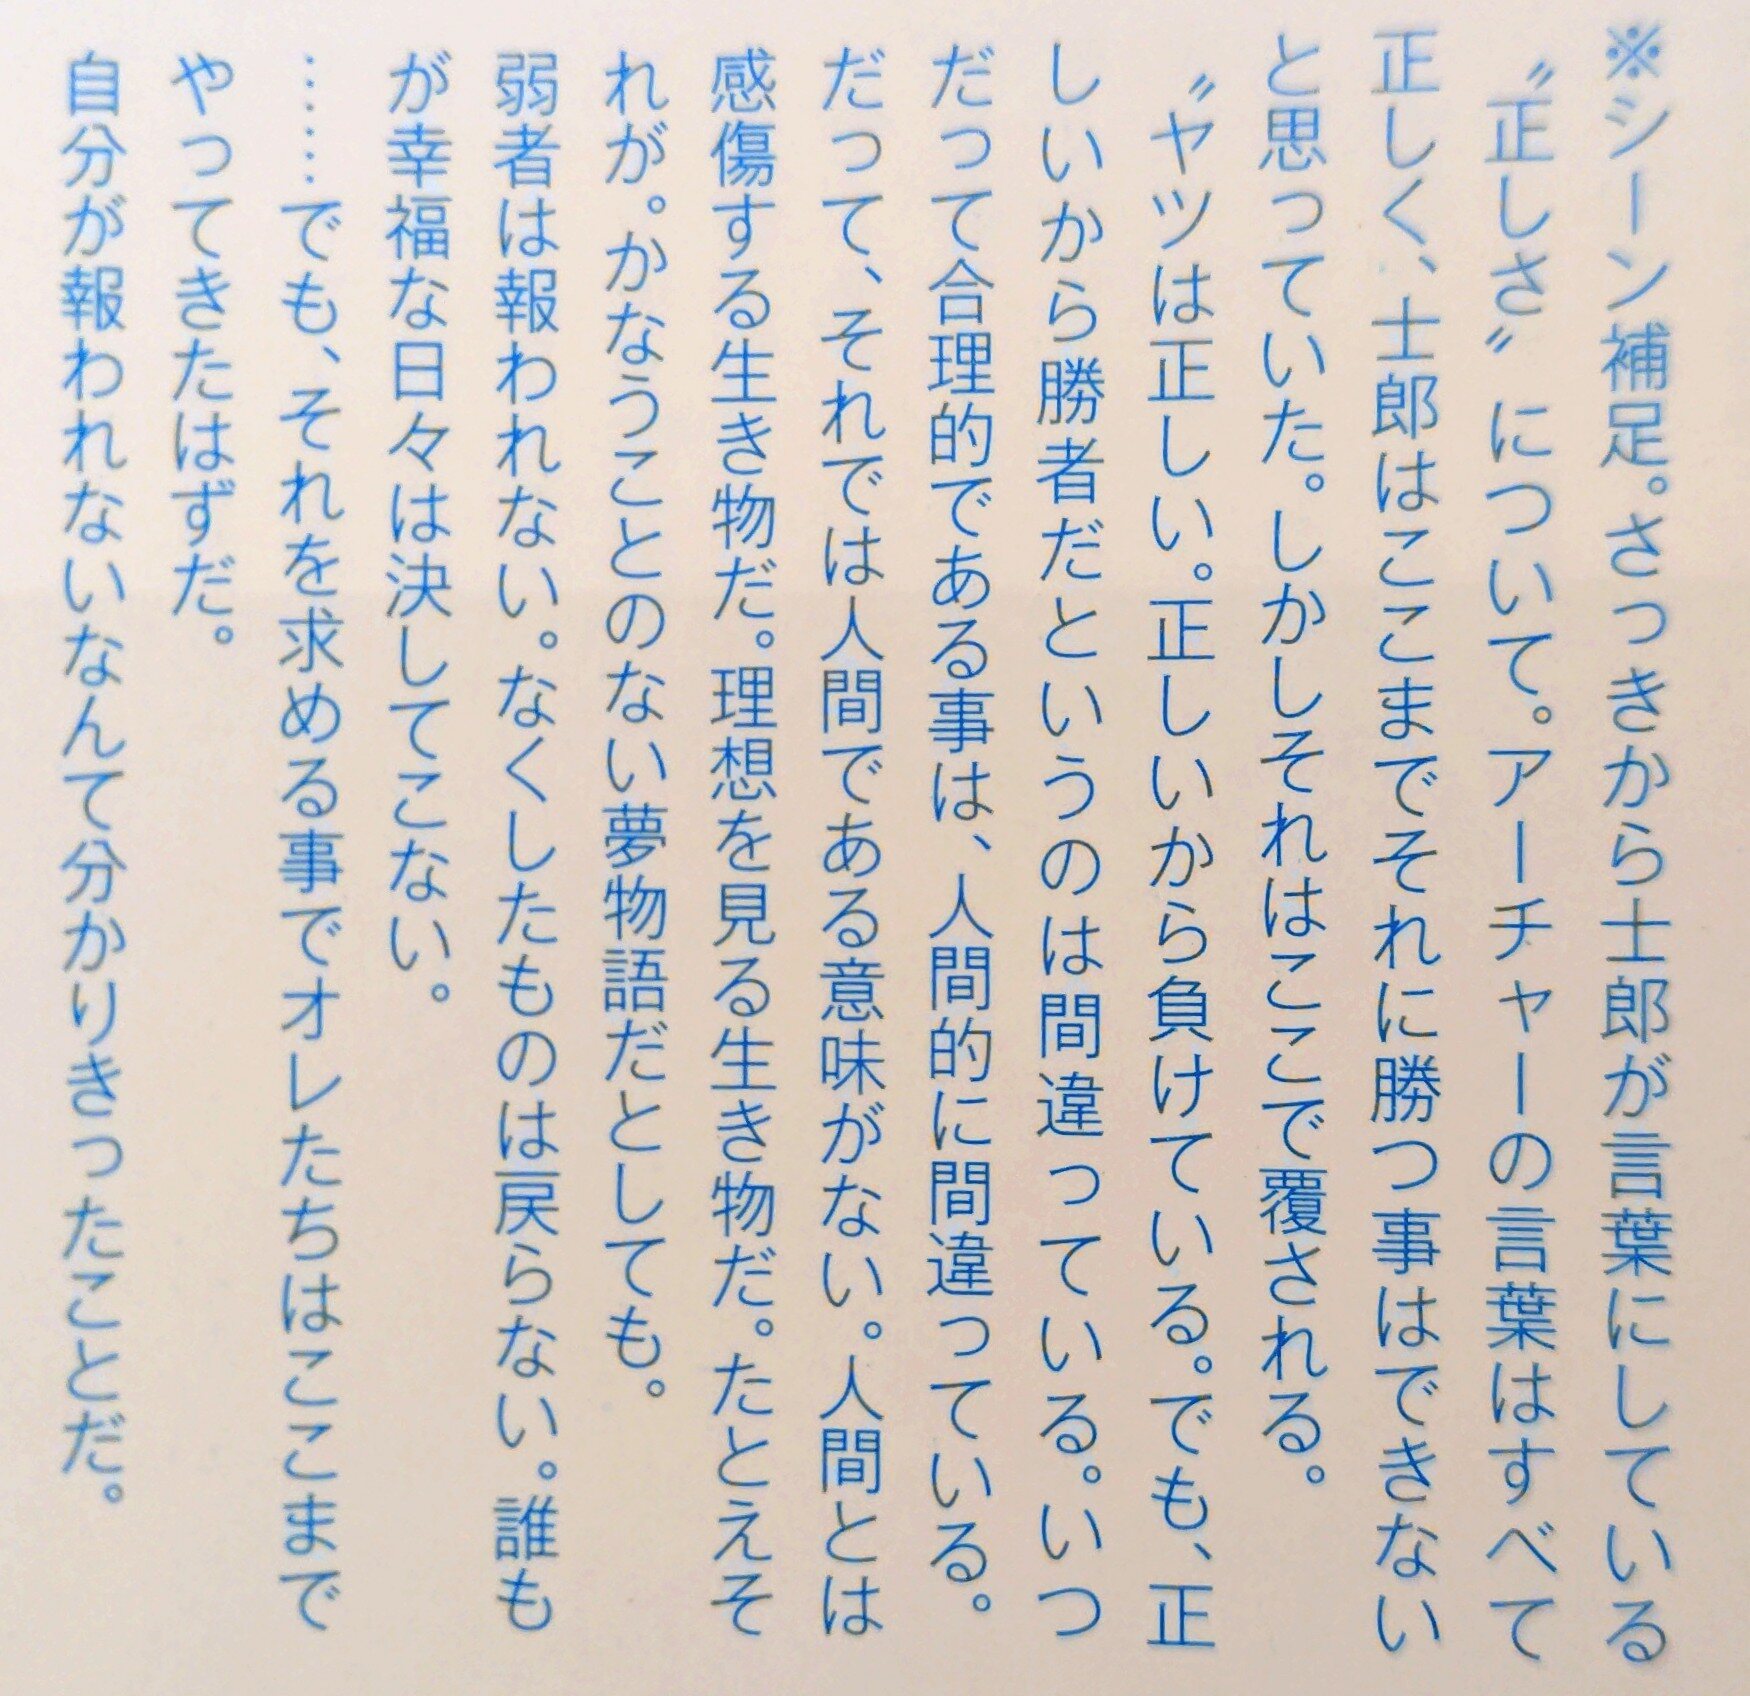 ※シーン補足。さっきから士郎が言葉にしている
〝正しさ〟について。アーチャーの言葉はすべて
正しく、士郎はここまでそれに勝つ事はできない
と思っていた。しかしそれはここで覆される。
〝ヤツは正しい。正しいから負けている。でも、正
しいから勝者だというのは間違っている。いつ
だって合理的である事は、人間的に間違っている。
だって、それでは人間である意味がない。人間とは
感傷する生き物だ。理想を見る生き物だ。たとえそ
れが。かなうことのない夢物語だとしても。
弱者は報われない。なくしたものは戻らない。誰も
が幸福な日々は決してこない。
……でも、それを求める事でオレたちはここまで
やってきたはずだ。
自分が報われないなんて分かりきったことだ。